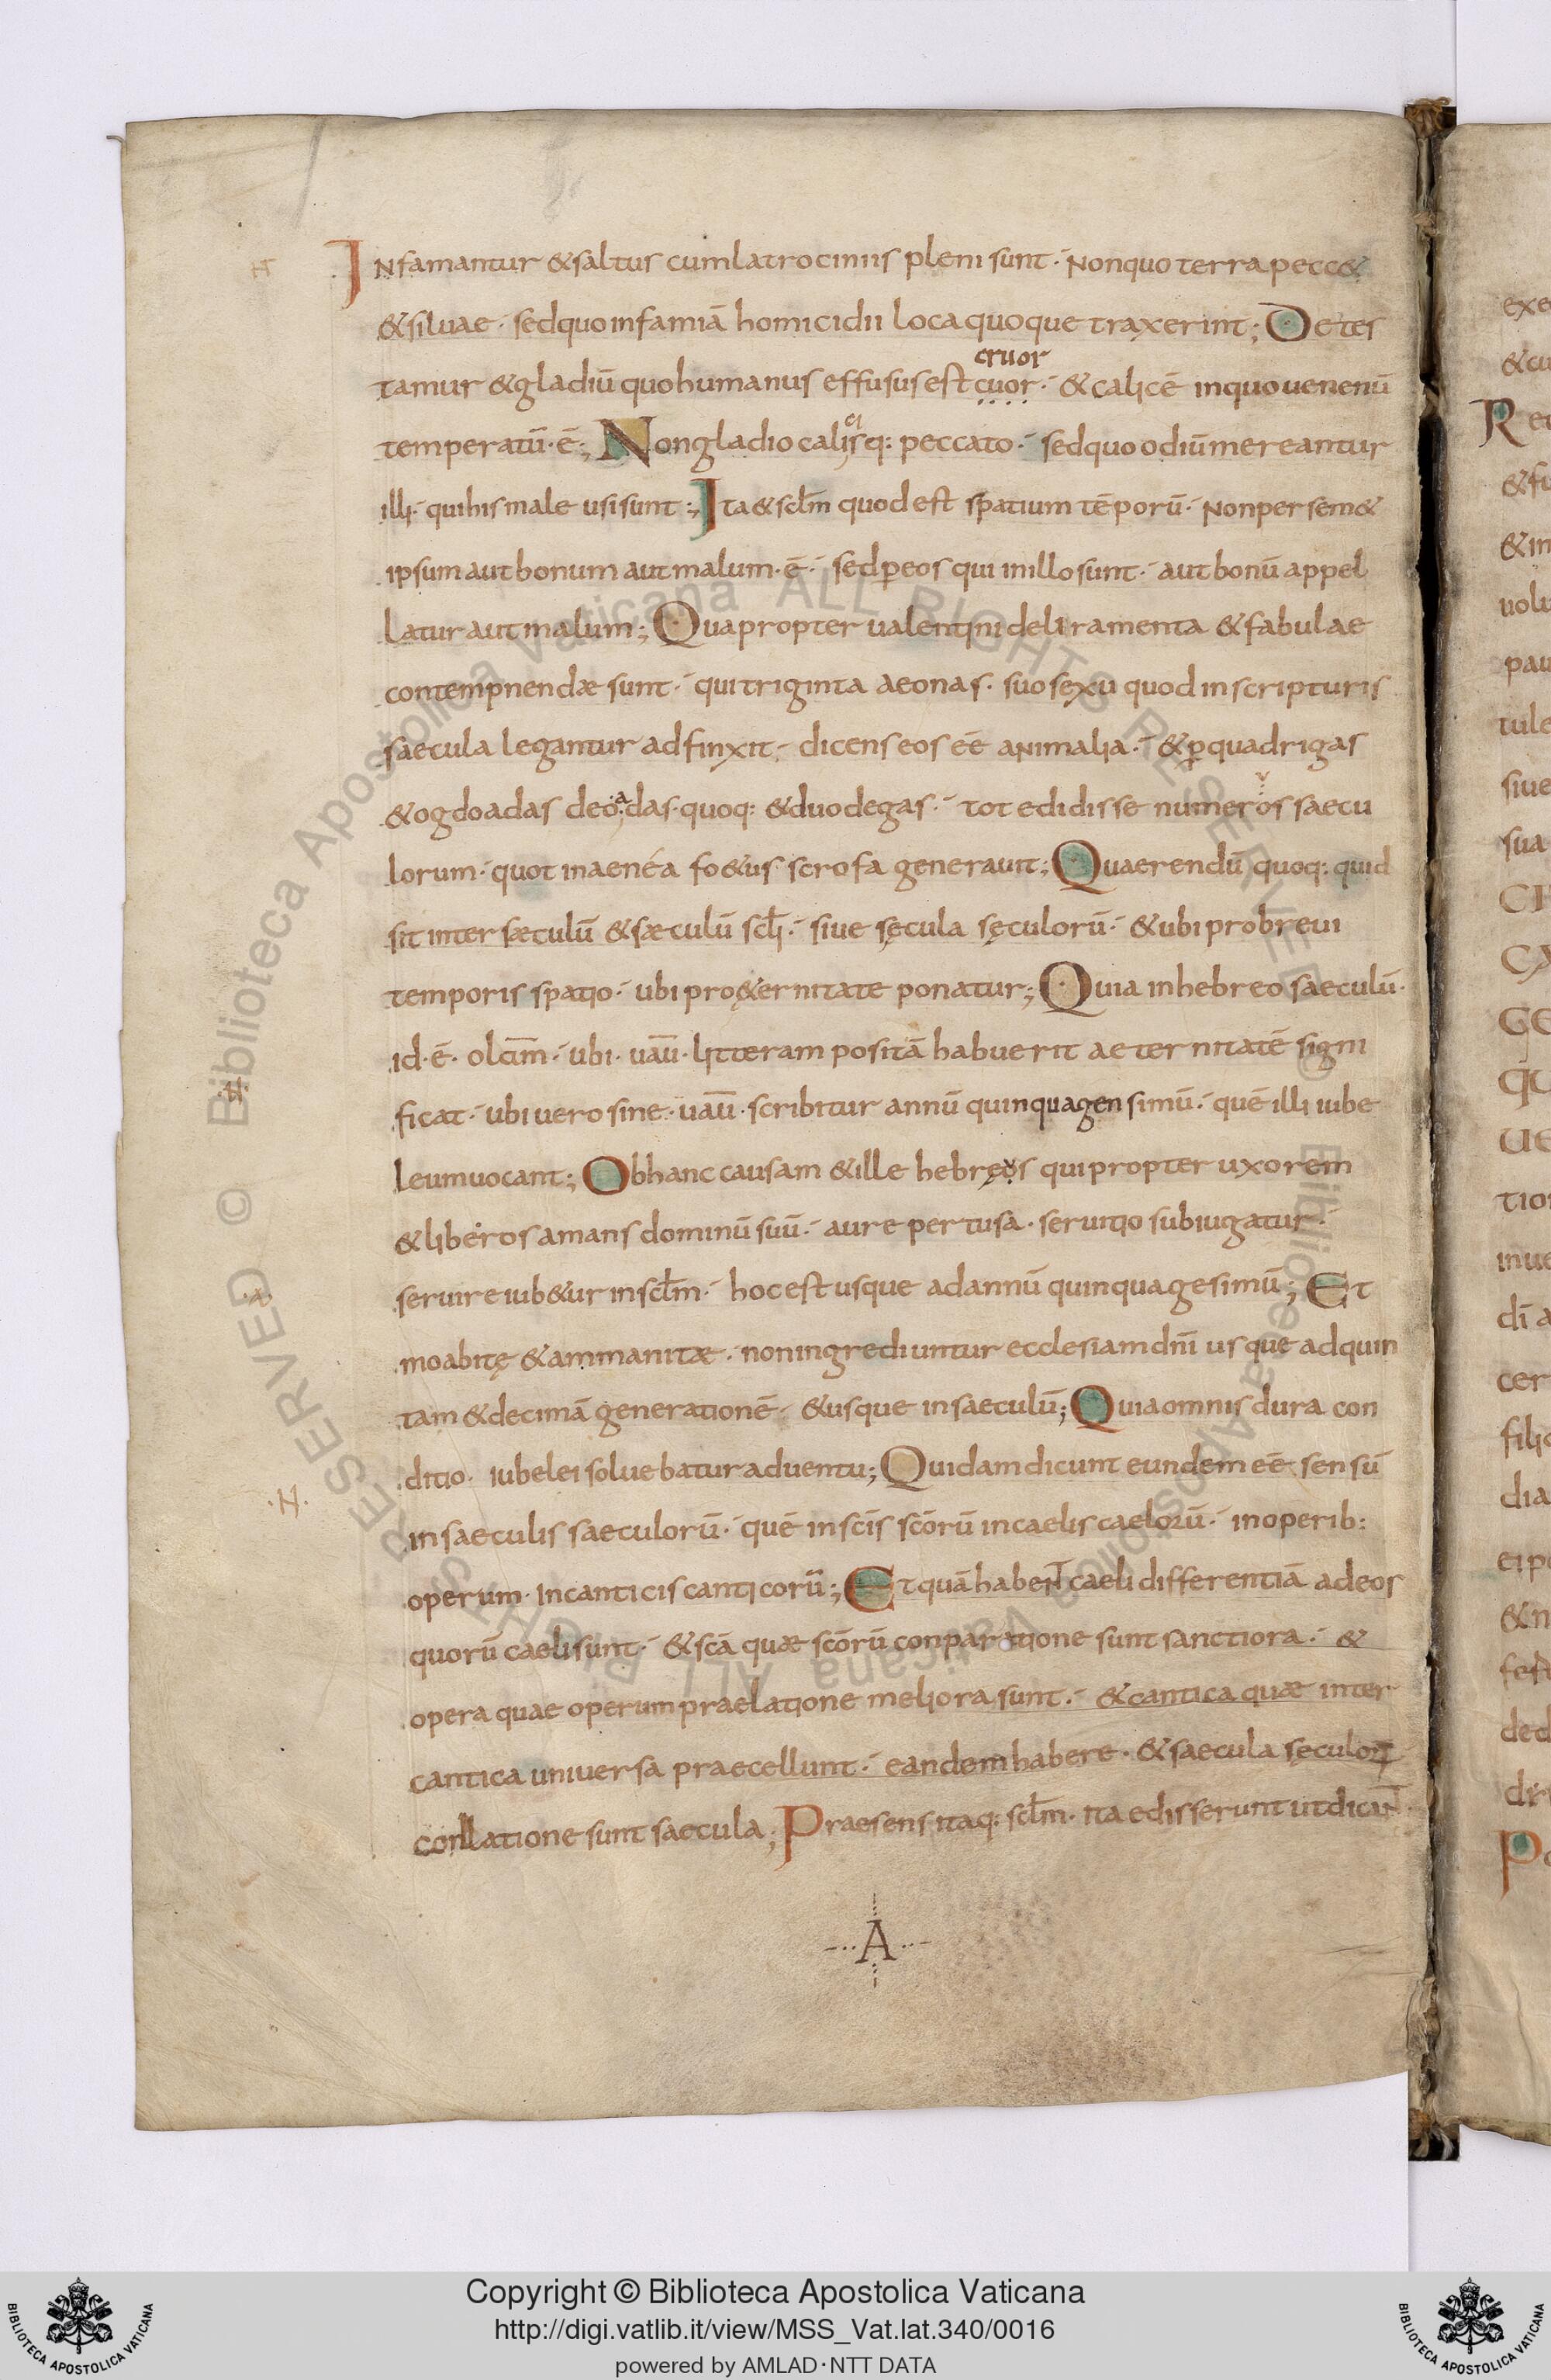 Infamantur & saltus cum latrociniis pleni sunt· Non quo terra pecc&
& siluae· sed quo infamiā homicidii loca quoque traxerint; Detes
cruor
tamur & gladiū quo humanus effusus est cuor· & calicē in quo uenenū
temperatū·ē; Non gladio calicisq: peccato· sed quo odiū mereantur
illi· qui his male usi sunt; Ita & sclm̄ quod est spatium tēporū· Non per sem&
ipsum aut bonum aut malum·ē· sed per eos qui in illo sunt· aut bonū appel
latur aut malum; Quapropter ualentini deliramenta & fabulae
contempnendæ sunt· qui triginta aeonas· suo sexu quod in scripturis
saecula legantur adfinxit· dicens eos eē animalia· & per quadrigas
& ogdoadas deoadas·quoq: & duodegas· tot edidisse numeros saecu
lorum· quot in aenéa fo&us scrofa generauit; Quaerendū quoq: quid
sit inter sæculū & sæculū scli· siue sęcula sęculorū· & ubi pro breui
temporis spatio· ubi pro &ernitate ponatur; Quia in hebreo saeculū·
id·ē· olam̄· ubi· uau·litteram positā habuerit aeternitatē signi
ficat· ubi uero sine·uau·scribitur annū quinquagensimū· quē illi iube
leum uocant; Ob hanc causam & ille hebręos qui propter uxorem
& liberos amans dominū suū· aure pertusa· seruitio subiugatur·
seruire iub&ur in sclm̄· hoc est usque ad annū quinquagesimū; Et
moabitę & ammanitæ· non ingrediuntur ecclesiam dnī usque ad quin
tam & decimā generationē· & usque in saeculū; Quia omnis dura con
ditio· iubelei soluebatur aduentu; Quidam dicunt eundem eē sensū
in saeculis saeculorū· quē in scīs scōrū in caelis caelorū· in operib:
operum· in canticis canticorū; Et quā habent caeli differentiā ad eos
quorū caeli sunt· & scā quæ scōrū conparatione sunt sanctiora· &
opera quae operum praelatione meliora sunt· & cantica quæ inter
cantica uniuersa praecellunt· eandem habere· & saecula sęculorꝝ
conlatione sunt saecula; Praesens itaq: sclm̄· ita edisserunt ut dicant
A
Copyright © Biblioteca Apostolica Vaticana
http://digi.vatlib.it/view/MSS_Vat.lat.340/0016
powered by AMLAD·NTT DATA